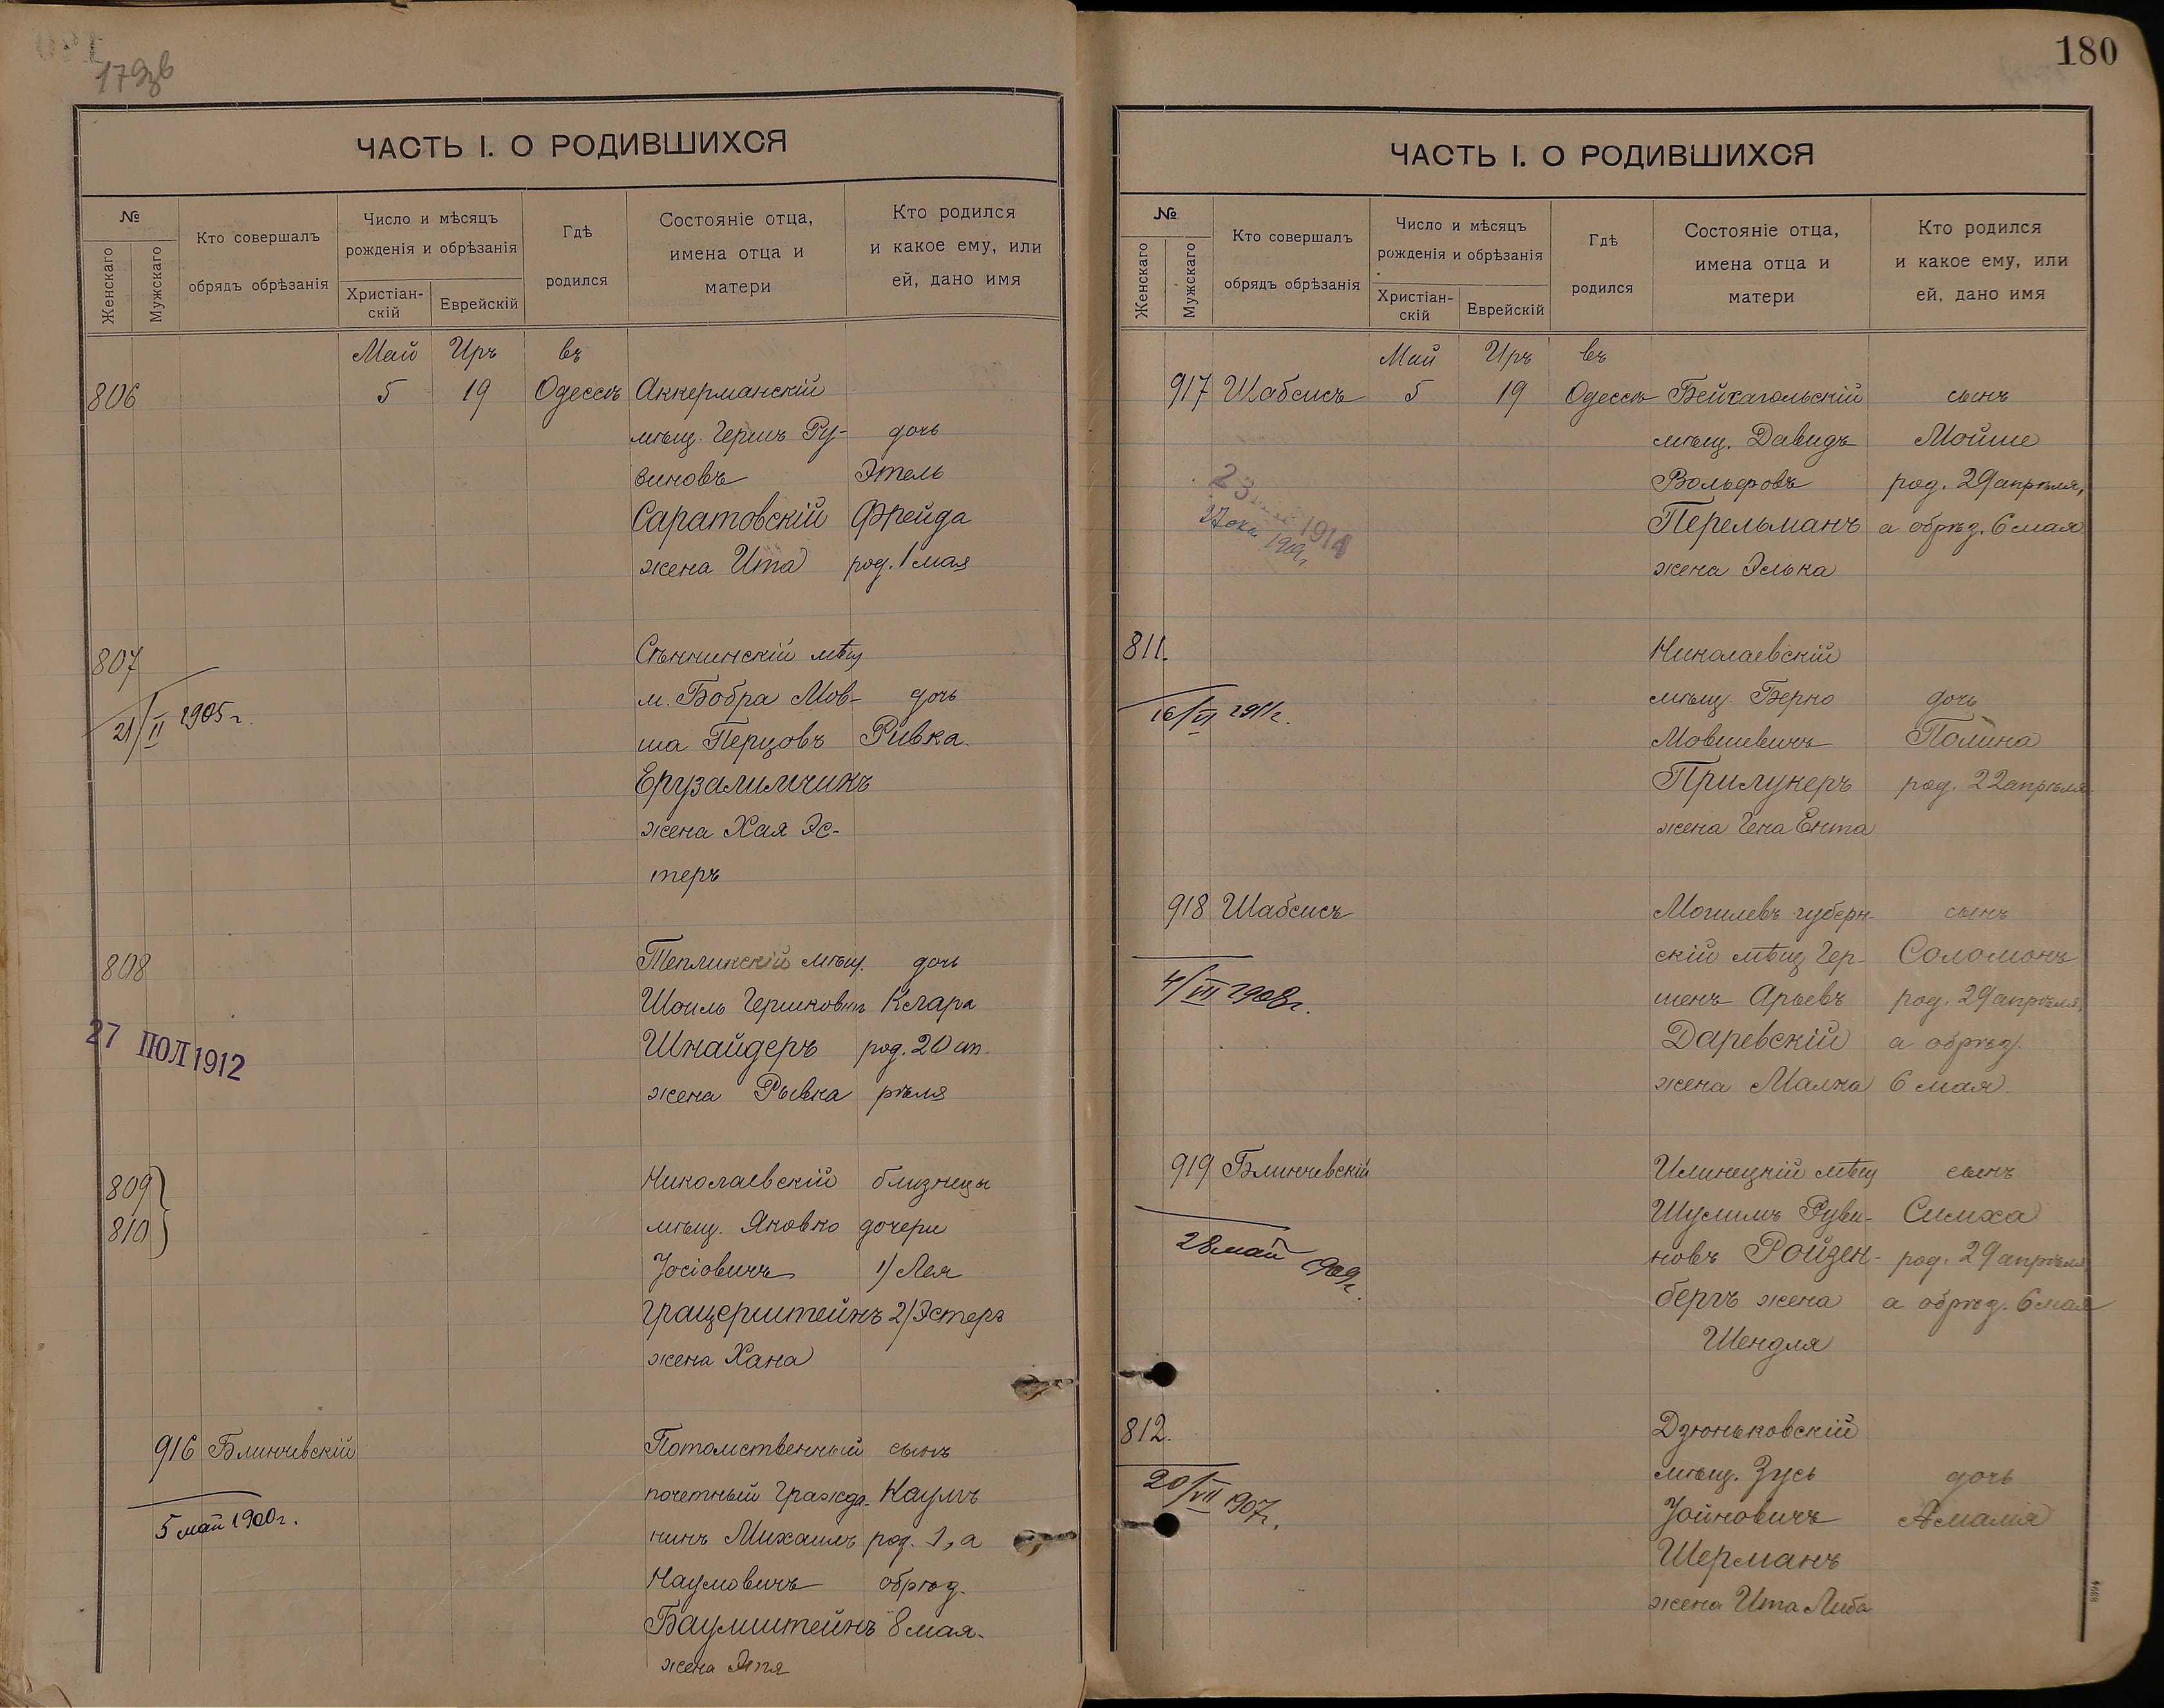 179зв
ЧАСТЬ I. О РОДИВШИХСЯ
№
Женскаго
Мужскаго
Кто совершалъ
обрядъ обрѣзанія
Число и мѣсяцъ
рожденія и обрѣзанія
Христіан-
скій
Еврейскій
Гдѣ
родился
Состояніе отца,
имена отца и
матери
Кто родился
и какое ему, или
ей, дано имя
Май Иръ въ
806 5 19 Одессѣ Аккерманскій
мѣщ. Гершъ Ру- дочь
виновъ Этель
Саратовскій Фрейда
жена Ита род. 1 мая
807 Сѣннинскій мѣщ
м. Бобра Мов- дочь
21/II 1905 г.
ша Перцовъ Ривка.
Ерузалимчикъ
жена Хая Эс-
теръ
808 Тепликскій мѣщ. дочь
Шоиль Гершковичъ Клара
27 ІЮЛ 1912
Шнайдеръ род. 20 ап-
жена Рывка рѣля
809 Николаевскій близнецы
810 мѣщ. Яновко дочери
Іосіовичъ 1) Лея
Грацерштейнъ 2) Эстеръ
жена Хана
916 Блинчевскій Потомственный сынъ
почетный гражда- Наумъ
5 май 1900 г.
нинъ Михаилъ род. 1, а
Наумовичъ обрѣз.
Баумштейнъ 8 мая.
жена
180
ЧАСТЬ I. О РОДИВШИХСЯ
№
Женскаго
Мужскаго
Кто совершалъ
обрядъ обрѣзанія
Число и мѣсяцъ
рожденія и обрѣзанія
Христіан-
скій
Еврейскій
Гдѣ
родился
Состояніе отца,
имена отца и
матери
Кто родился
и какое ему, или
ей, дано имя
Май Иръ въ
917 Шабсисъ 5 19 Одессѣ Бейкагольскій сынъ
мѣщ. Давидъ Мойше
Вольфовъ род. 29 апрѣля,
23 1914
1909 г.
Перельманъ а обрѣз. 6 мая
жена Элька
811. Николаевскій
мѣщ. Берко дочь
16/VI 1911 г.
Мовшевичъ Полина
Прилукеръ род. 22 апрѣля
жена Гена Ента
918 Шабсисъ Могилевъ губерн- сынъ
скій мѣщ Гер- Соломонъ
4/VII 1908 г.
шенъ Арьевъ род. 29 апрѣля,
Даревскій а обрѣз.
жена Малка 6 мая
919 Блинчевскій Илинецкій мѣщ сынъ
Шулимъ Руви- Симха
28 май 1909 г.
новъ Ройзен- род. 29 апрѣля
бергъ жена а обрѣз. 6 мая
Шендля
812. Дзюньковскій
мѣщ. Зусь дочь
20/VII 1907 г.
Іойновичъ Амалія
Шерманъ
жена Ита Либа